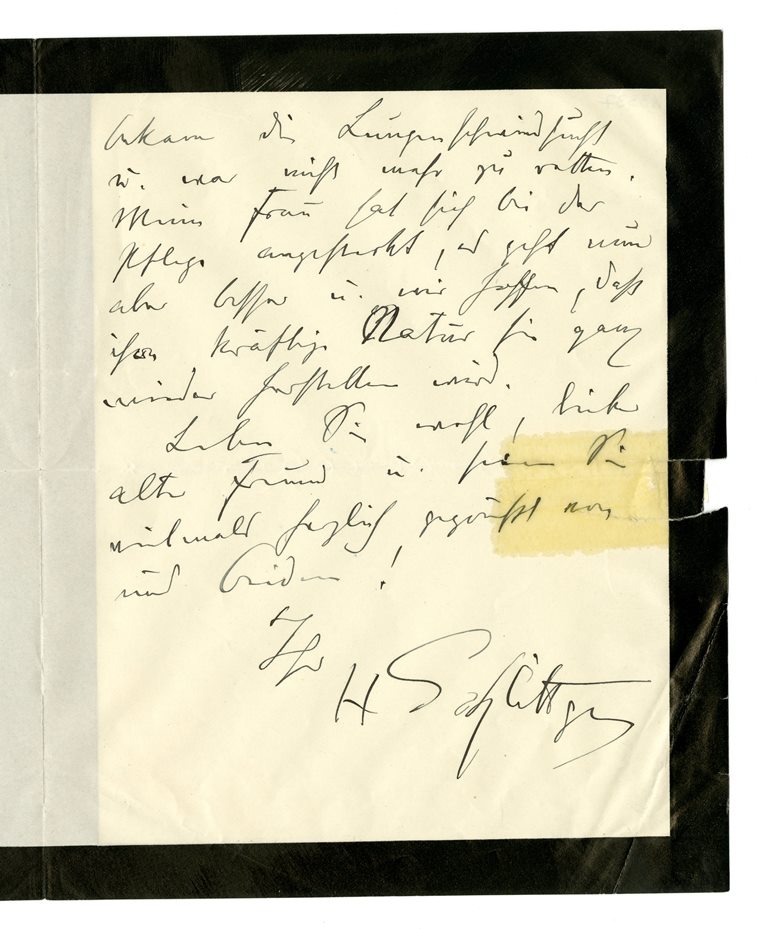 bekam die Lungenschwindsucht
u. war nicht mehr zu retten.
Meine Frau hat sich bei der
Pflege angesteckt, es geht nun
aber besser u. wir hoffen, dass
ihre kräftige Natur sie ganz
wieder herstellen wird.
Leben Sie wohl, lieber
alter Freund u. seien Sie
vielmals herzlich gegrüsst von
uns beiden!
Ihr
H Schlittgen